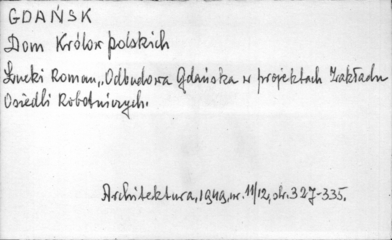 GDAŃSK
Dom Królów polskich
Roman, „Odbudowa Gdańska w projektach Zakładu
Osiedli Robotniczych.
Architektura, 1949, nr. 11/12, str. 327-335.